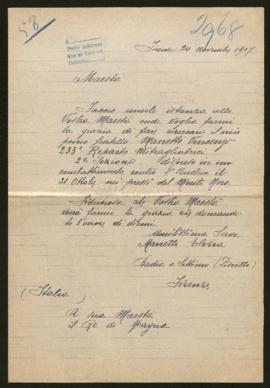 2968
Firenze 24 novembre 1917
Maestà
Faccio umile istanza alla
Vostra Maestà onde voglia farmi
la grazia di fare ricercare il mio
povero fratello Manetti Vincenzo
233° Reparto Mitragliatrici
2ª Sezione disperso in un
combattimento contro l'Austria il
21 Ottobre nei pressi del Monte Nero.
Fiduciosa che Vostra Maestà
vorrà farmi la grazia che domando
l'onore di dirmi
Umilissima Serva
Manetti Elena
Badia a Settimo
Firenze
(Italia)
A sua Maestà
il Re di Spagna